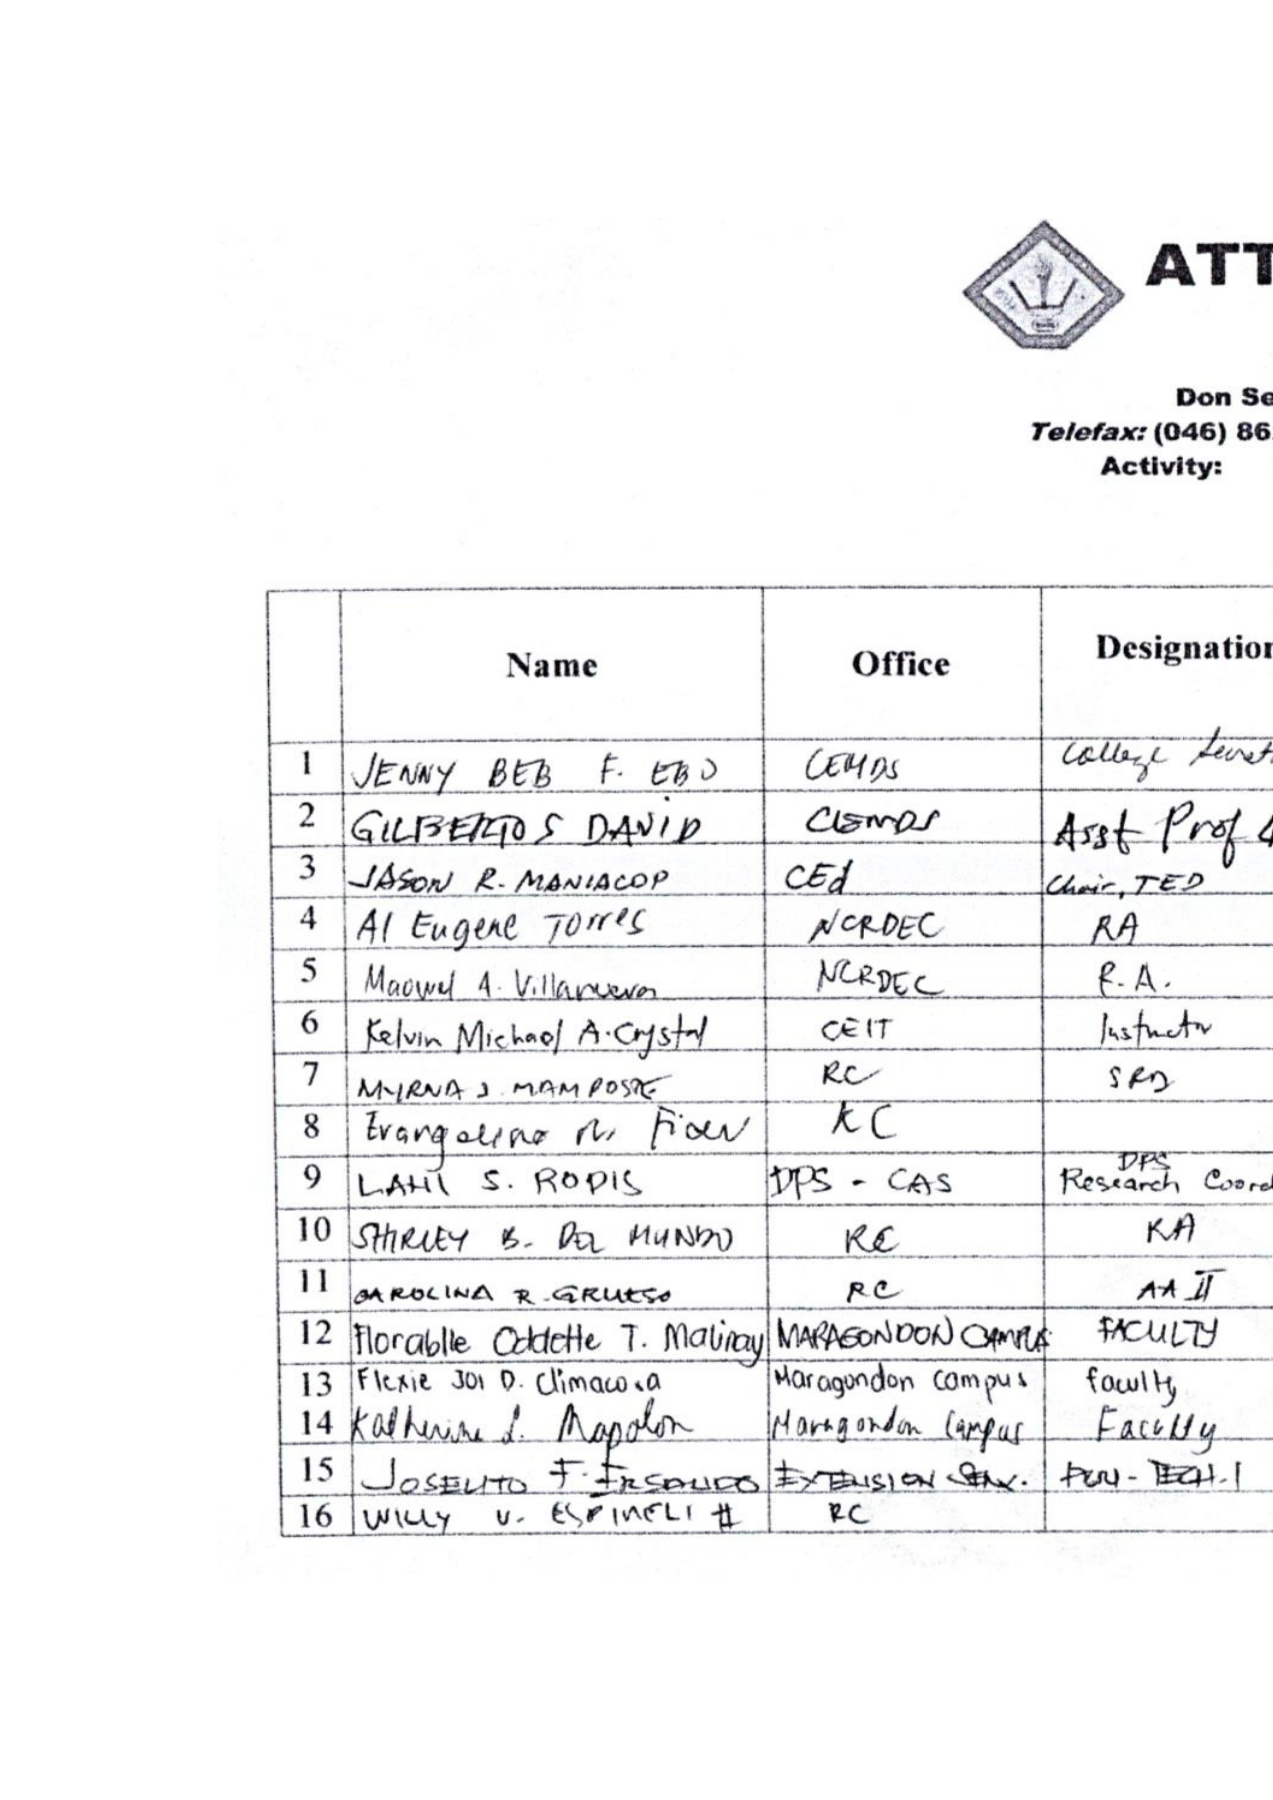 ATT
Don Se
Telefax: (046) 86
Activity:
Name Office Designation
1 JENNY BEB F. EBO CEMDS College
2 GILBERTO S DAVID CEMDS Asst Prof 4
3 JASON R. MANIACOP CEd Chair, TED
4 Al Eugene Torres NCRDEC RA
5 A. Villanueva NCRDEC R.A.
6 Kelvin Michael A. Crystal CEIT Instructor
7 MYRNA J. RC
8 RC
9 LANI S. RODIS DPS - CAS DPS
Research Coord
10 SHIRLEY B. DEL MUNDO RC RA
11 CAROLINA R. GRUESO RC AA II
12 Florablle Oddette T. Maliray MARAGONDON CAMPUS FACULTY
13 Flexie Joi D. Climacosa Maragondon campus faculty
14 Katherine L. Mapolon Maragondon Campus Faculty
15 JOSELITO F. EXTENSION SERV.
16 WILLY V. ESPINELI # RC